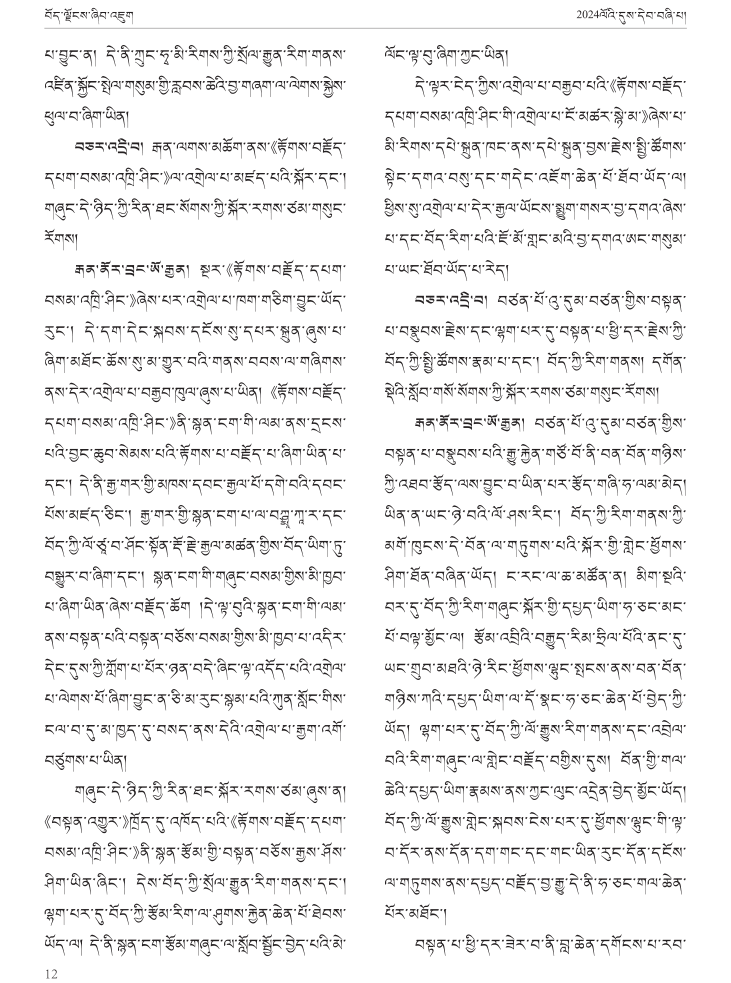 བོད་ལྗོངས་ཞིབ་འཇུག
2024ལོའི་དུས་དེབ་བཞི་པ།
པ་བྱུང་ན། དེ་ནི་ཀྲུང་ཧྭ་མི་རིགས་ཀྱི་སྲོལ་རྒྱུན་རིག་གནས་
འཛིན་སྐྱོང་སྤེལ་གསུམ་གྱི་རླབས་ཆེའི་བྱ་གཞག་ལ་ལེགས་སྐྱེས་
ཕུལ་བ་ཞིག་ཡིན།
བཅར་འདྲི་བ། རྒན་ལགས་མཆོག་ནས་《རྟོགས་བརྗོད་
དཔག་བསམ་འཁྲི་ཤིང་》ལ་འགྲེལ་པ་མཛད་པའི་སྐོར་དང་།
གཞུང་དེ་ཉིད་ཀྱི་རིན་ཐང་སོགས་ཀྱི་སྐོར་རགས་ཙམ་གསུང་
རོགས།
རྒན་ནོར་བྲང་ཨོ་རྒྱན། སྔར་《རྟོགས་བརྗོད་དཔག་
བསམ་འཁྲི་ཤིང་》ཞེས་པར་འགྲེལ་པ་ཁག་གཅིག་བྱུང་ཡོད་
རུང་། དེ་དག་དེང་སྐབས་དངོས་སུ་དཔར་སྐྲུན་ཞུས་པ་
ཞིག་མཐོང་ཆོས་སུ་མ་གྱུར་བའི་གནས་བབས་ལ་གཞིགས་
ནས་དེར་འགྲེལ་པ་བརྒྱབ་ཁུལ་ཞུས་པ་ཡིན། 《རྟོགས་བརྗོད་
དཔག་བསམ་འཁྲི་ཤིང་》ནི་སྙན་ངག་གི་ལམ་ནས་དྲངས་
པའི་བྱང་ཆུབ་སེམས་པའི་རྟོགས་པ་བརྗོད་པ་ཞིག་ཡིན་པ་
དང་། དེ་ནི་རྒྱ་གར་གྱི་མཁས་དབང་རྒྱལ་པོ་དགེ་བའི་དབང་
པོས་མཛད་ཅིང་། རྒྱ་གར་གྱི་སྙན་ངག་པ་ལ་བཀྵྨཱ་ཀཱ་ར་དང་
བོད་ཀྱི་ལོ་ཙཱ་བ་ཤོང་སྟོན་རྡོ་རྗེ་རྒྱལ་མཚན་གྱིས་བོད་ཡིག་ཏུ་
བསྒྱུར་བ་ཞིག་དང་། སྙན་ངག་གི་གཞུང་བསམ་གྱིས་མི་ཁྱབ་
པ་ཞིག་ཡིན་ཞེས་བརྗོད་ཆོག །དེ་ལྟ་བུའི་སྙན་ངག་གི་ལམ་
ནས་བསྟན་པའི་བསྟན་བཅོས་བསམ་གྱིས་མི་ཁྱབ་པ་འདིར་
དེང་དུས་ཀྱི་ཀློག་པ་པོར་ཉན་བདེ་ཞིང་ལྟ་འདོད་པའི་འགྲེལ་
པ་ལེགས་པོ་ཞིག་བྱུང་ན་ཅི་མ་རུང་སྙམ་པའི་ཀུན་སློང་གིས་
ངལ་བ་དུ་མ་ཁྱད་དུ་བསད་ནས་དེའི་འགྲེལ་པ་རྒྱག་འགོ་
བཙུགས་པ་ཡིན།
གཞུང་དེ་ཉིད་ཀྱི་རིན་ཐང་སྐོར་རགས་ཙམ་ཞུས་ན།
《བསྟན་འགྱུར་》ཁྲོད་དུ་འཁོད་པའི་《རྟོགས་བརྗོད་དཔག་
བསམ་འཁྲི་ཤིང་》ནི་སྙན་རྩོམ་གྱི་བསྟན་བཅོས་རྒྱས་ཤོས་
ཤིག་ཡིན་ཞིང་། དེས་བོད་ཀྱི་སྲོལ་རྒྱུན་རིག་གནས་དང་།
ལྷག་པར་དུ་བོད་ཀྱི་རྩོམ་རིག་ལ་ཤུགས་རྐྱེན་ཆེན་པོ་ཐེབས་
ཡོད་ལ། དེ་ནི་སྙན་ངག་རྩོམ་གཞུང་ལ་སློབ་སྦྱོང་བྱེད་པའི་མེ་
ལོང་ལྟ་བུ་ཞིག་ཀྱང་ཡིན།
དེ་ལྟར་ངེད་ཀྱིས་འགྲེལ་པ་བརྒྱབ་པའི་《རྟོགས་བརྗོད་
དཔག་བསམ་འཁྲི་ཤིང་གི་འགྲེལ་པ་ངོ་མཚར་སྙེ་མ་》ཞེས་པ་
མི་རིགས་དཔེ་སྐྲུན་ཁང་ནས་དཔེ་སྐྲུན་བྱས་རྗེས་སྤྱི་ཚོགས་
སྟེང་དགའ་བསུ་དང་གདེང་འཇོག་ཆེན་པོ་ཐོབ་ཡོད་ལ།
ཕྱིས་སུ་འགྲེལ་པ་དེར་རྒྱལ་ཡོངས་སྨྱུག་གསར་བྱ་དགའ་ཞེས་
པ་དང་བོད་རིག་པའི་ཇོ་མོ་གླང་མའི་བྱ་དགའ་ཨང་གསུམ་
པ་ཡང་ཐོབ་ཡོད་པ་རེད།
བཅར་འདྲི་བ། བཙན་པོ་འུ་དུམ་བཙན་གྱིས་བསྟན་
པ་བསྣུབས་རྗེས་དང་ལྷག་པར་དུ་བསྟན་པ་ཕྱི་དར་རྗེས་ཀྱི་
བོད་ཀྱི་སྤྱི་ཚོགས་རྣམ་པ་དང་། བོད་ཀྱི་རིག་གནས། དགོན་
སྡེའི་སློབ་གསོ་སོགས་ཀྱི་སྐོར་རགས་ཙམ་གསུང་རོགས།
རྒན་ནོར་བྲང་ཨོ་རྒྱན། བཙན་པོ་འུ་དུམ་བཙན་གྱིས་
བསྟན་པ་བསྣུབས་པའི་རྒྱུ་རྐྱེན་གཙོ་བོ་ནི་བན་བོན་གཉིས་
ཀྱི་འཐབ་རྩོད་ལས་བྱུང་བ་ཡིན་པར་རྩོད་གཞི་ཧ་ལམ་མེད།
ཡིན་ན་ཡང་ཉེ་བའི་ལོ་ཤས་རིང་། བོད་ཀྱི་རིག་གནས་ཀྱི་
མགོ་ཁུངས་དེ་བོན་ལ་གཏུགས་པའི་སྐོར་གྱི་གླེང་ཕྱོགས་
ཤིག་ཐོན་བཞིན་ཡོད། ང་རང་ལ་ཆ་མཚོན་ན། མིག་སྔའི་
བར་དུ་བོད་ཀྱི་རིག་གཞུང་སྐོར་གྱི་དཔྱད་ཡིག་ཧ་ཅང་མང་
པོ་བལྟ་མྱོང་ལ། རྩོམ་འབྲིའི་བརྒྱུད་རིམ་ཧྲིལ་པོའི་ནང་དུ་
ཡང་གྲུབ་མཐའི་ཉེ་རིང་ཕྱོགས་ལྷུང་སྤངས་ནས་བན་བོན་
གཉིས་ཀའི་དཔྱད་ཡིག་ལ་དོ་སྣང་ཧ་ཅང་ཆེན་པོ་བྱེད་ཀྱི་
ཡོད། ལྷག་པར་དུ་བོད་ཀྱི་ལོ་རྒྱུས་རིག་གནས་དང་འབྲེལ་
བའི་རིག་གཞུང་ལ་གླེང་བརྗོད་བགྱིས་དུས། བོན་གྱི་གལ་
ཆེའི་དཔྱད་ཡིག་རྣམས་ནས་ཀྱང་ལུང་འདྲེན་བྱེད་མྱོང་ཡོད།
བོད་ཀྱི་ལོ་རྒྱུས་གླེང་སྐབས་ངེས་པར་དུ་ཕྱོགས་ལྷུང་གི་ལྟ་
བ་དོར་ནས་དོན་དག་གང་དང་གང་ཡིན་རུང་དོན་དངོས་
ལ་གཏུགས་ནས་དཔྱད་བརྗོད་བྱ་རྒྱུ་དེ་ནི་ཧ་ཅང་གལ་ཆེན་
པོར་མཐོང་།
བསྟན་པ་ཕྱི་དར་ཟེར་བ་ནི་བླ་ཆེན་དགོངས་པ་རབ་
12